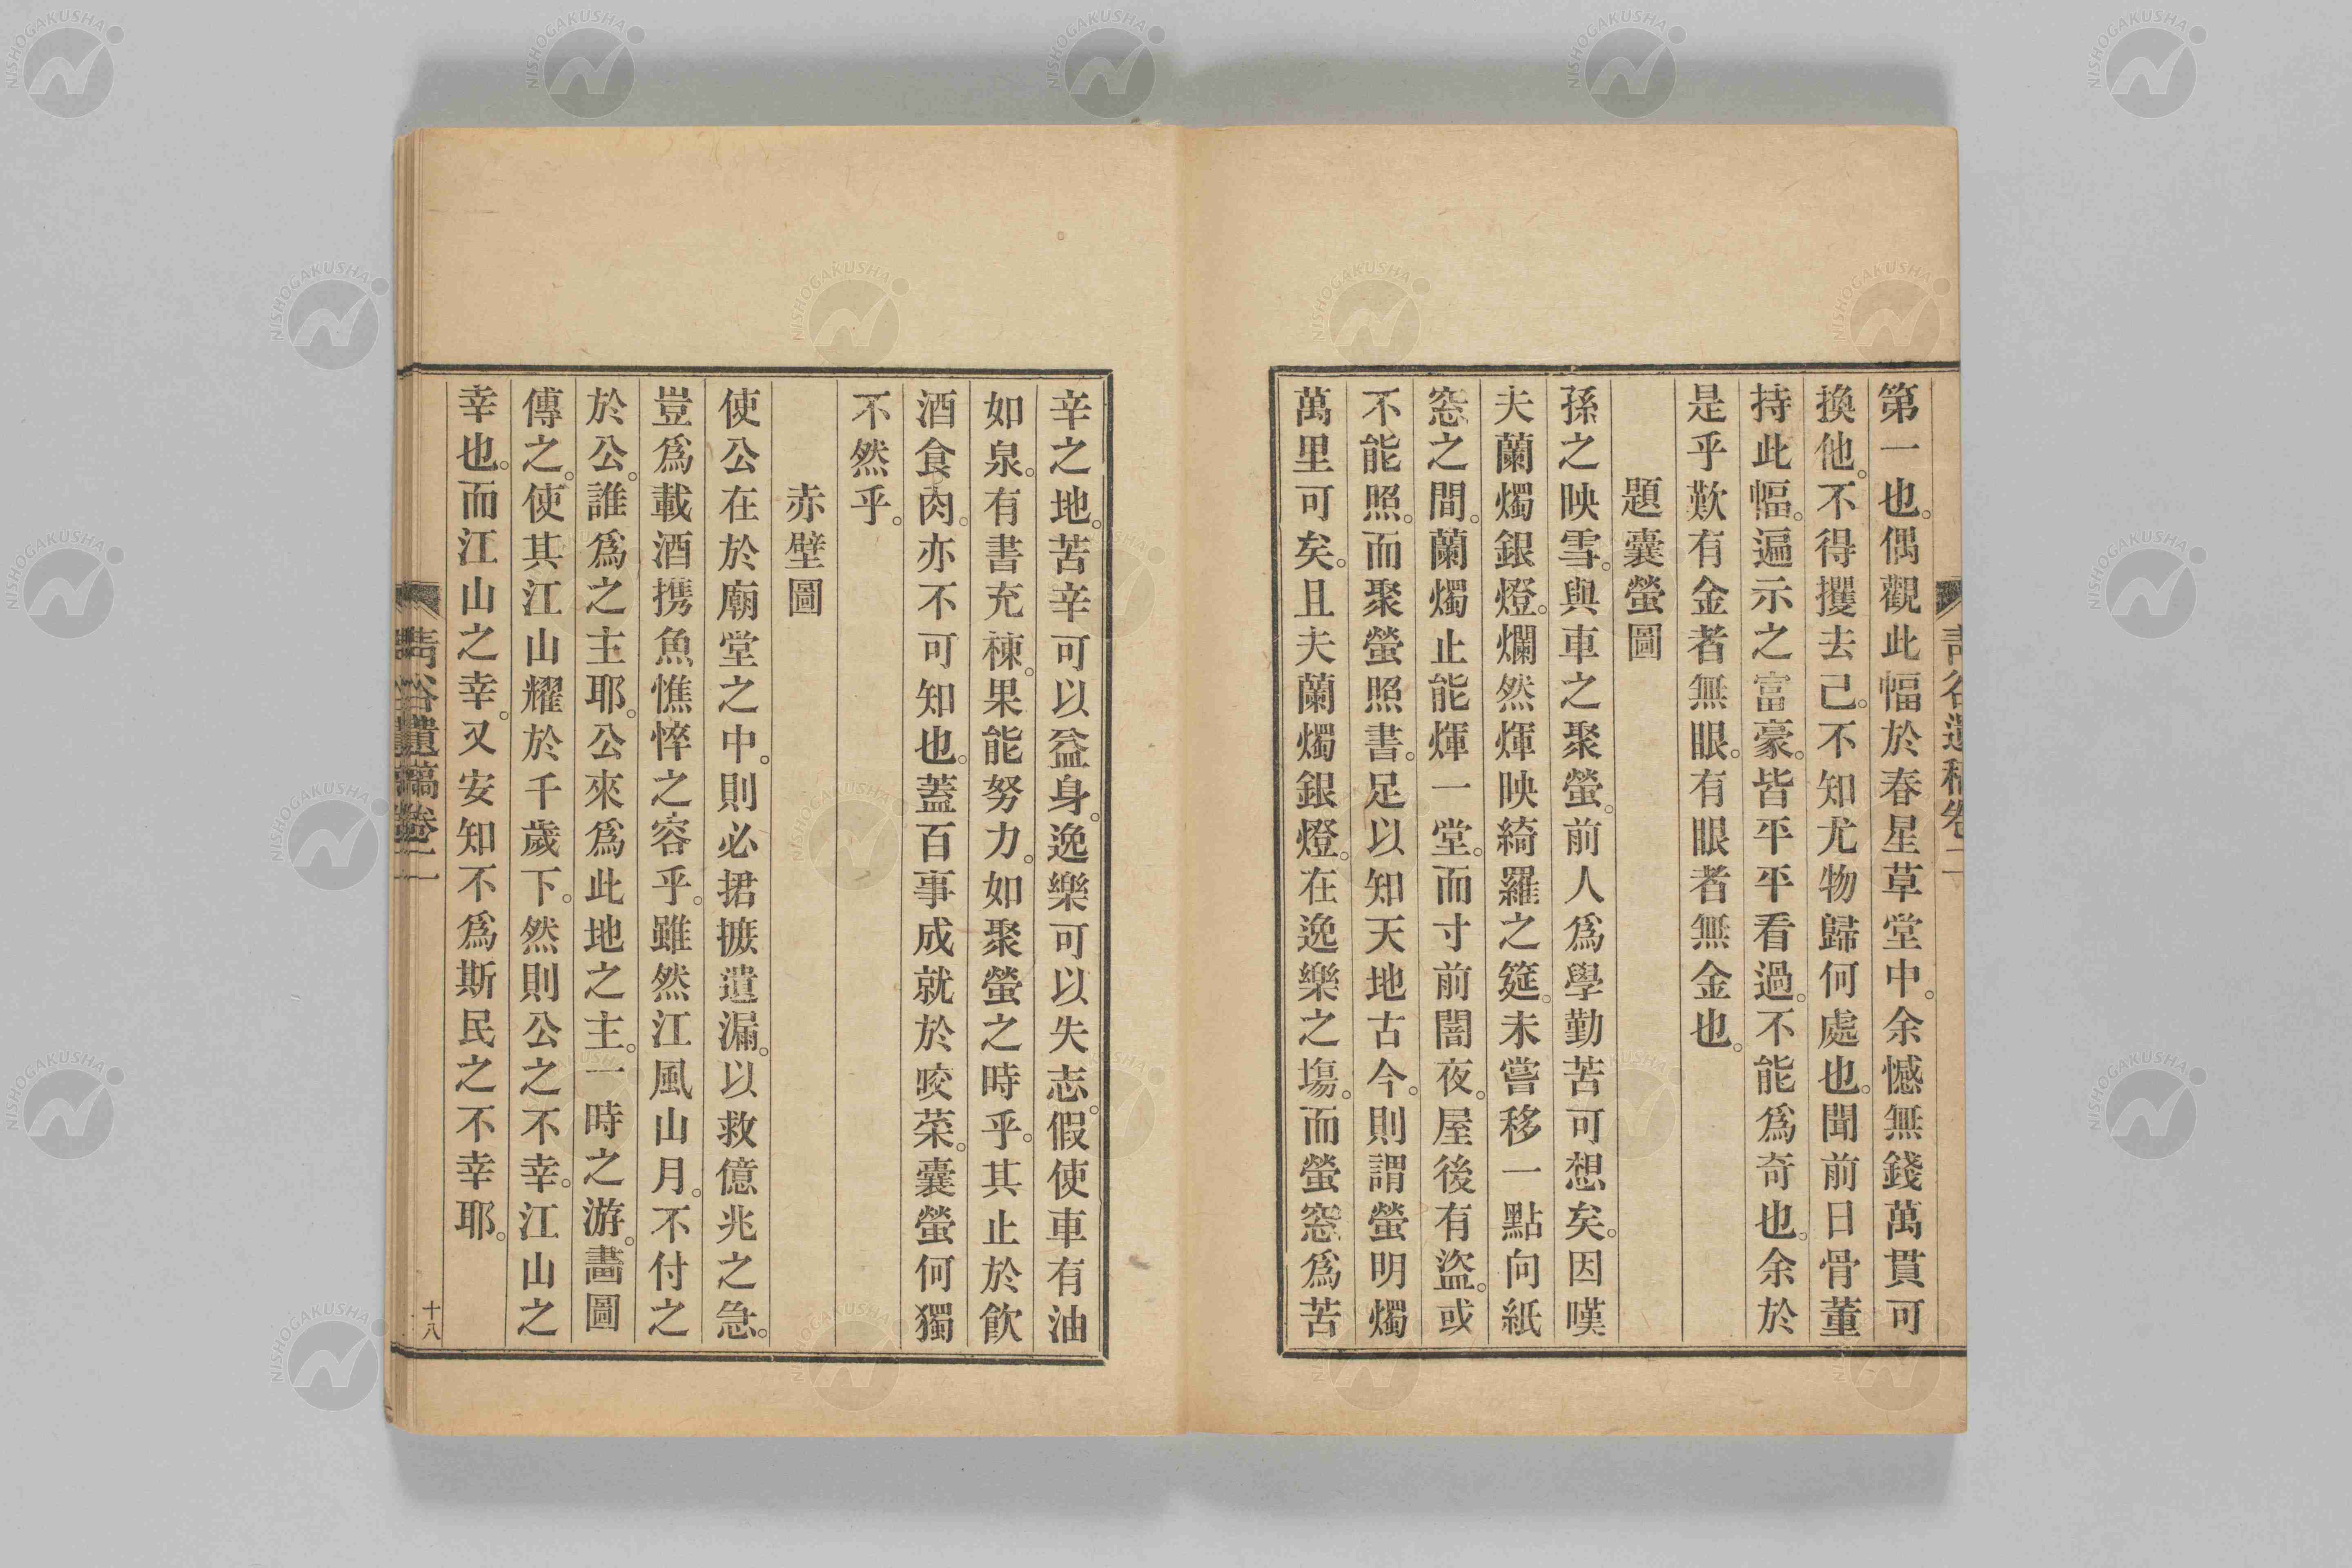 第一也。偶觀此幅於春星草堂中。余憾無錢萬貫可
換他。不得攫去已。不知尤物歸何處也。聞前日骨董
持此幅。遍示之富豪。皆平平看過。不能爲奇也。余於
是乎歎有金者無眼。有眼者無金也。
題囊螢圖
孫之映雪。與車之聚螢。前人爲學勤苦可想矣。因嘆
夫蘭燭銀燈。爛然煇映綺羅之筵。未嘗移一點向紙
窓之間。蘭燭止能煇一堂。而寸前闇夜。屋後有盜。或
不能照。而聚螢照書。足以知天地古今。則謂螢明燭
萬里可矣。且夫蘭燭銀燈。在逸樂之塲。而螢窓爲苦
辛之地。苦辛可以益身。逸樂可以失志。假使車有油
如泉。有書充棟。果能努力。如聚螢之時乎。其止於飮
酒食肉。亦不可知也。蓋百事成就於咬菜。囊螢何獨
不然乎。
赤壁圖
使公在於廟堂之中。則必捃摭遺漏。以救億兆之急。
豈爲載酒携魚憔悴之容乎。雖然江風山月。不付之
於公。誰爲之主耶。公來爲此地之主。一時之游。畵圖
傳之。使其江山耀於千歲下。然則公之不幸。江山之
幸也。而江山之幸。又安知不爲斯民之不幸耶。
十八
NISHOGAKUSHA